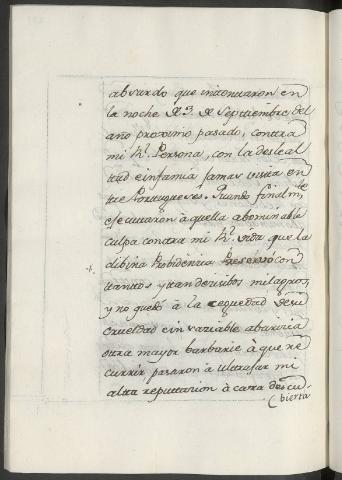 absurdo que intentaron en
la noche de 3 de Septiembre del
año proximo pasado, contra
mi Rl. Persona, con la desleal
ttad e infamia jamas vista en
tre Portugueses. Quando finalmte
executaron aquella abominable
culpa contra mi Rl. vida que la
dibina Probidencia Preservó con
tantos y tan devisibos milagros,
y no quedó à la cequedad de su
crueldad e in variable abaricia
otra mayor barbarie à que re
currir pasaron à ultrajar mi
alta reputtacion à cara descu-
bierta